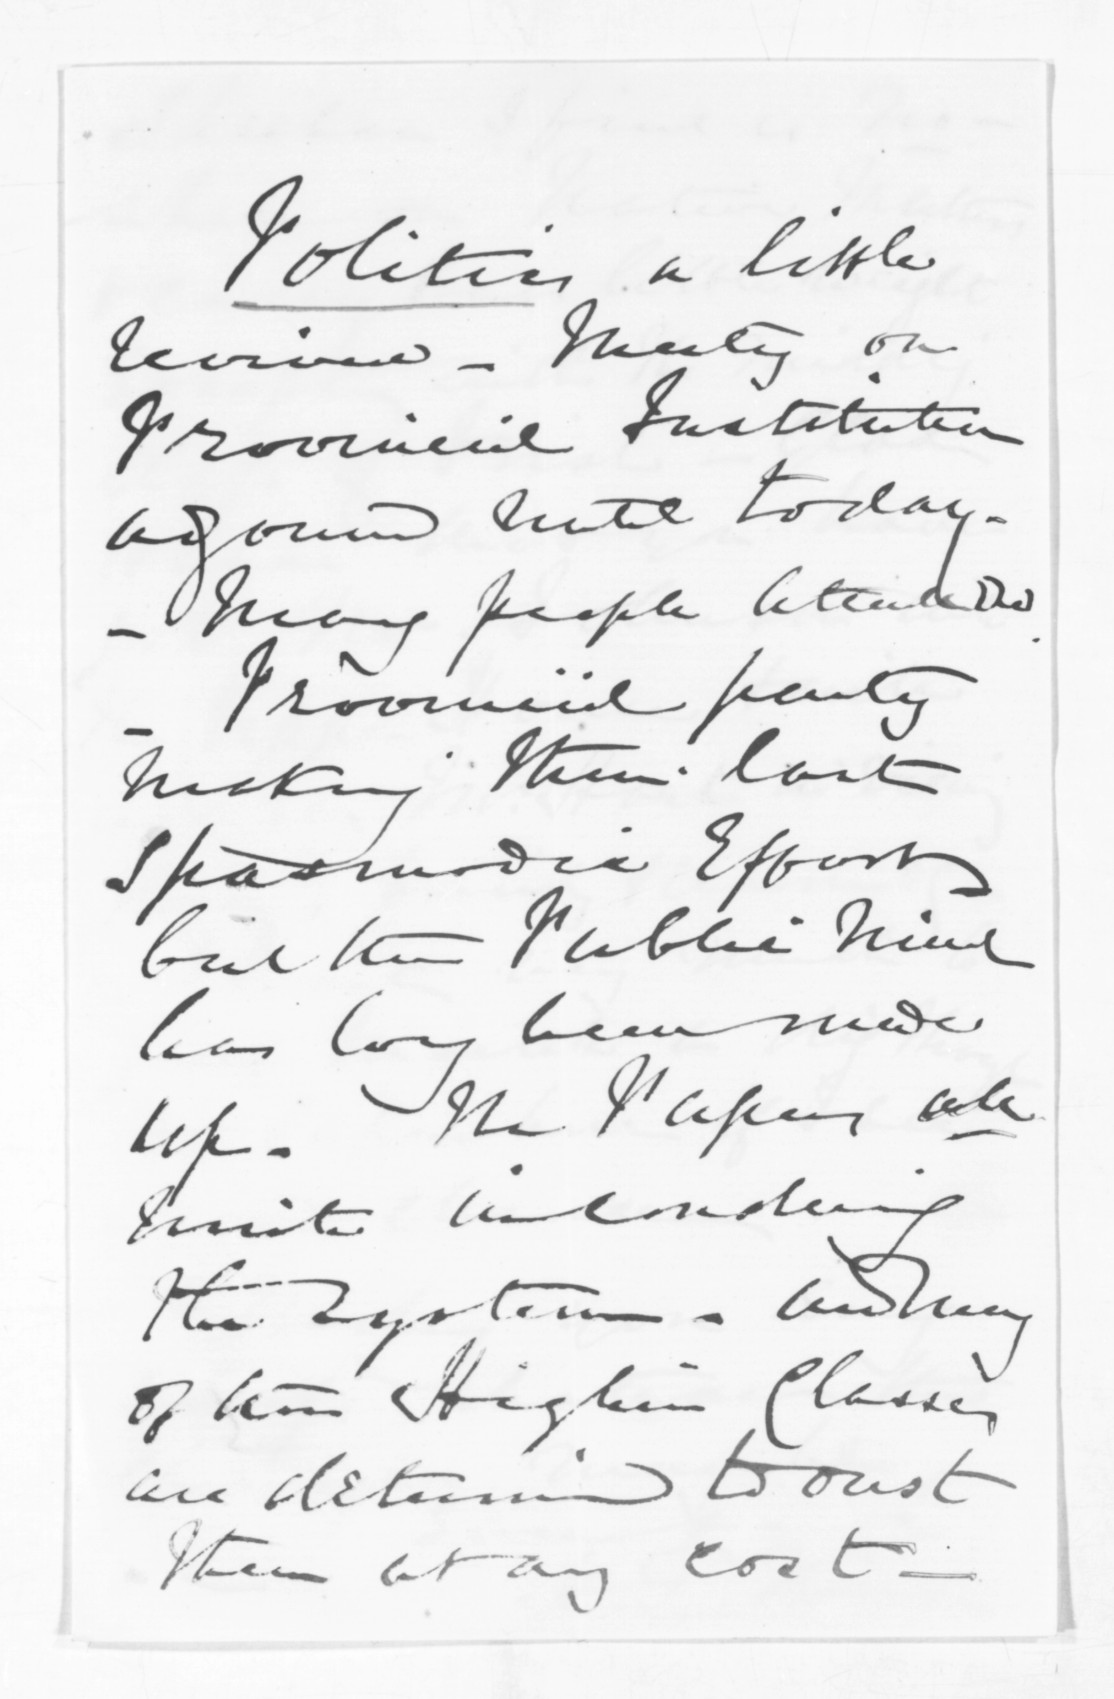 Politics a little
revived - Meeting on
Provincial Institution
adjourned until today.
- Many people attended.
- Provincial party
making their last
spasmodic Efforts
but the Public Mind
has long been made
up. The Papers all
unite in condemning
the system. and many
of the Higher Classes
are determined to oust
them at any cost -